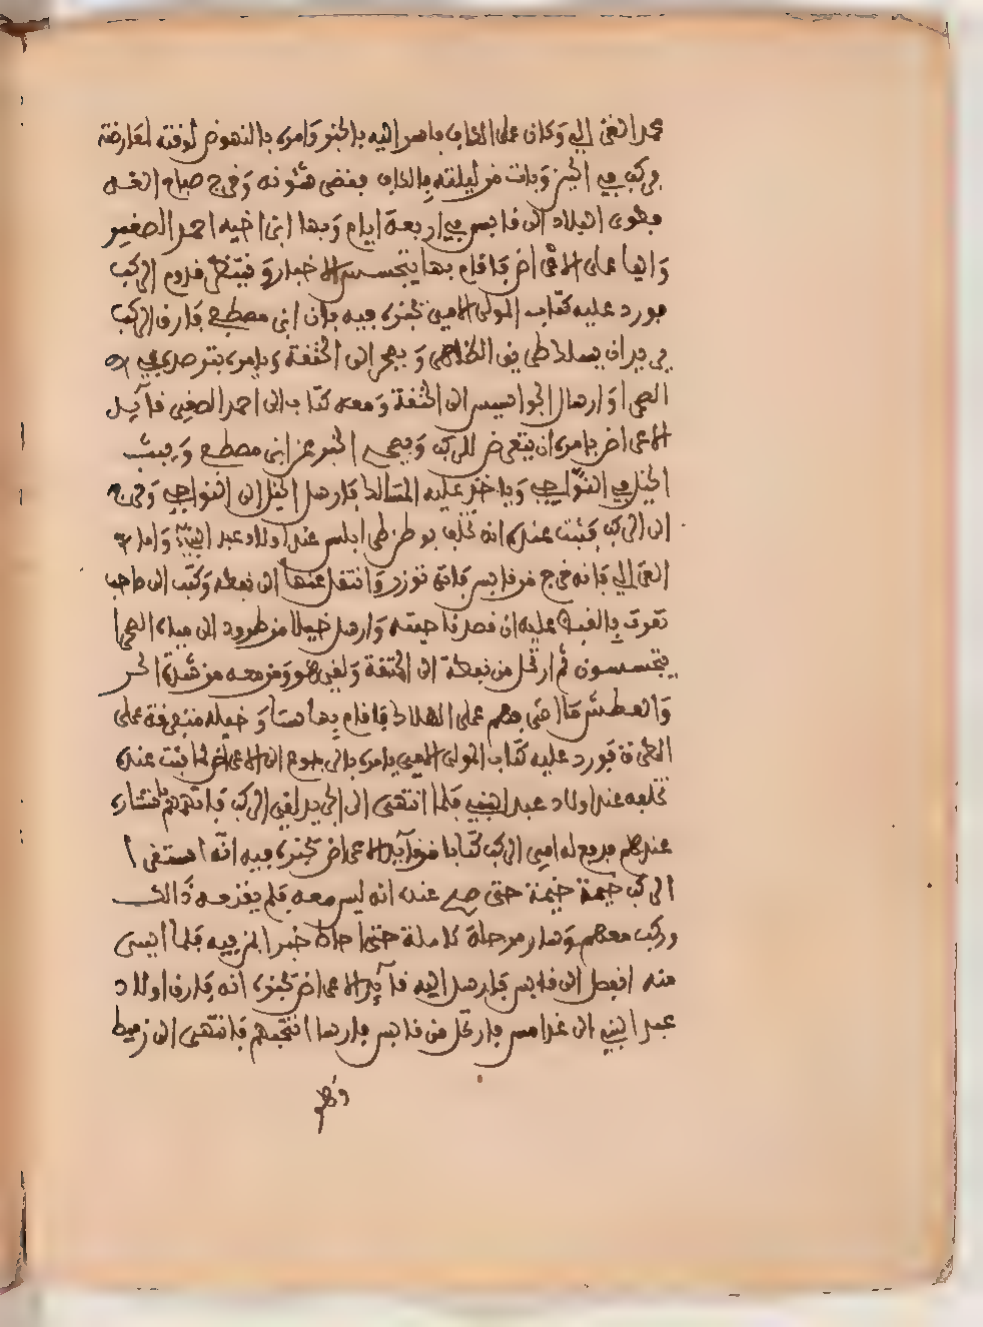 محمد الغزالي وكان على الكاف فأرسل إليه بالخبر وأمره بالنهوض لوقته لمعارضته
فركب في الخيل وبات من ليلته بالكاف بقضى شئونه وخرج صباح الغد
فطوى البلاد الى قابس في أربعة أيام وبها ابن اخيه احمد الصغير
واليا على الاعراض فأقام بها يتجسس الاخبار وينتظر قدوم الركب
فورد عليه كتاب المولى الامير يخبره فيه بان ابن مصطفى فارق الركب
يريد ان يسلط طريق الظاهر ويعبر الى الخنقة ويأمره بترصده في
الصحرا وارسال الجواسيس الى الخنقة ومعه كتاب الى احمد الصغير قايد
الاعراض يأمره ان يتعرض للركب ويصحح الخبر عن ابن مصطفى ويبث
الخيل في النواحي ويأخذ عليه المسالك فأرسل الخيل الى النواحي وخرج
الى الركب فثبت عنده انه تخلف بوطن طرابلس عند اولاد عبد النبي واما
الغزالي فإنه خرج من قابس فأتى توزر وانتقل عنها الى نفطة وكتب الى صاحب
تقرت بالقبض عليه ان قصد ناحيته وارسل خيلا من طرود الى مياه الصحرا
يتجسسون ثم ارتحل من نفطة الى الخنقة ولقي هو ومن معه من شدة الحر
والعطش ما اشرفهم على الهلاك فأقام بها ستا وخيله متفرقة على
الطرق فورد عليه كتاب المولى الامير يأمره بالرجوع الى الاعراض لما ثبت عنده
تخلفه عند اولاد عبد النبي فلما انتهى الى الجريد لقي الركب فاتهمهم باستتاره
عندهم فرفع له امير الركب كتابا من قايد الاعراض يخبره فيه انه استقرى
الركب خيمة خيمة حتى صح عنده انه ليس معه فلم يقنعه ذالك
وركب معهم وسار مرحلة كاملة حتى احاط خبرا بمن فيه فلما ايس
منه انفصل الى قابس فأرسل اليه قايد الاعراض يخبره انه فارق اولاد
عبد النبي الى غدامس فارتحل من قابس فارسا انتخبهم فانتهى الى زميط